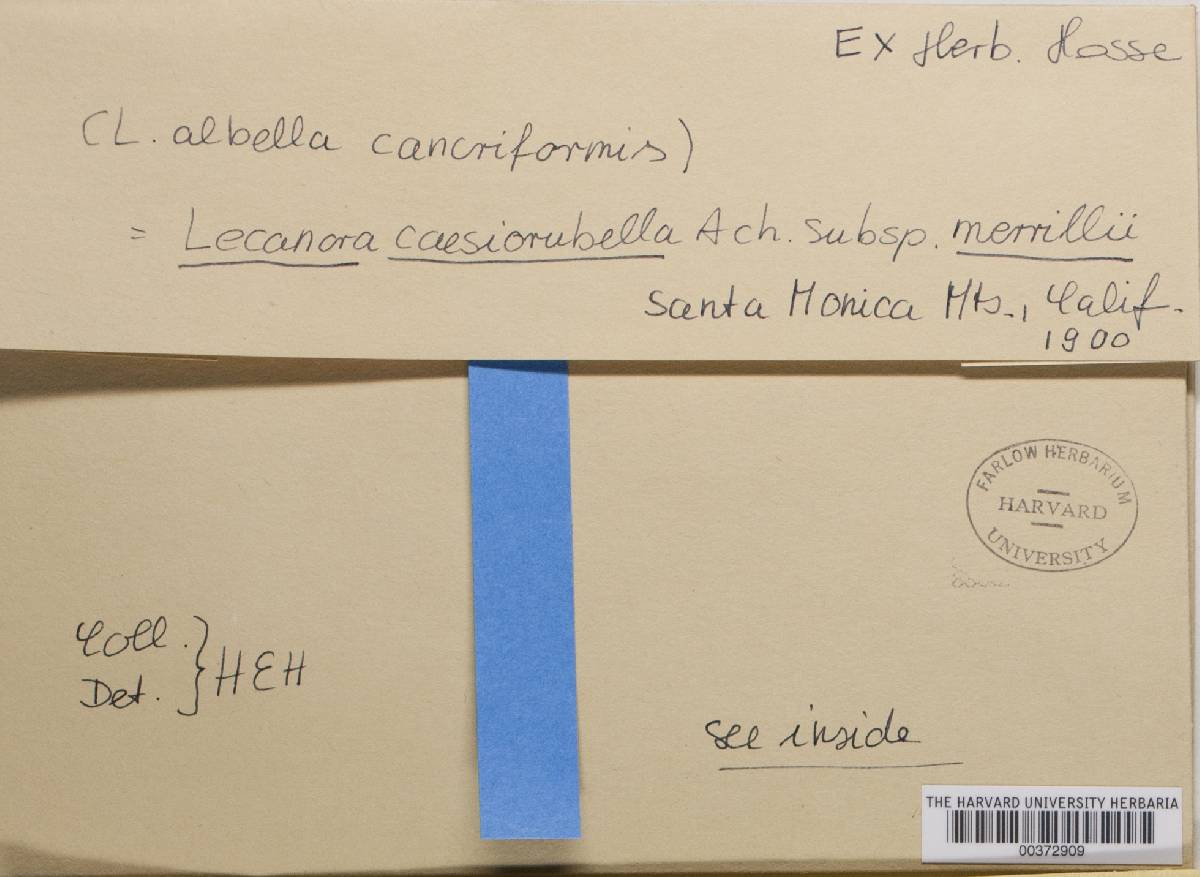 Ex Herb. Hasse
(L. albella cancriformis)
= Lecanora caesiorubella Ach. subsp. merrillii
Santa Monica Mts., Calif.
1900
FARLOW HERBARIUM
HARVARD
UNIVERSITY
Coll. } HEH
Det.
see inside
THE HARVARD UNIVERSITY HERBARIA
00372909